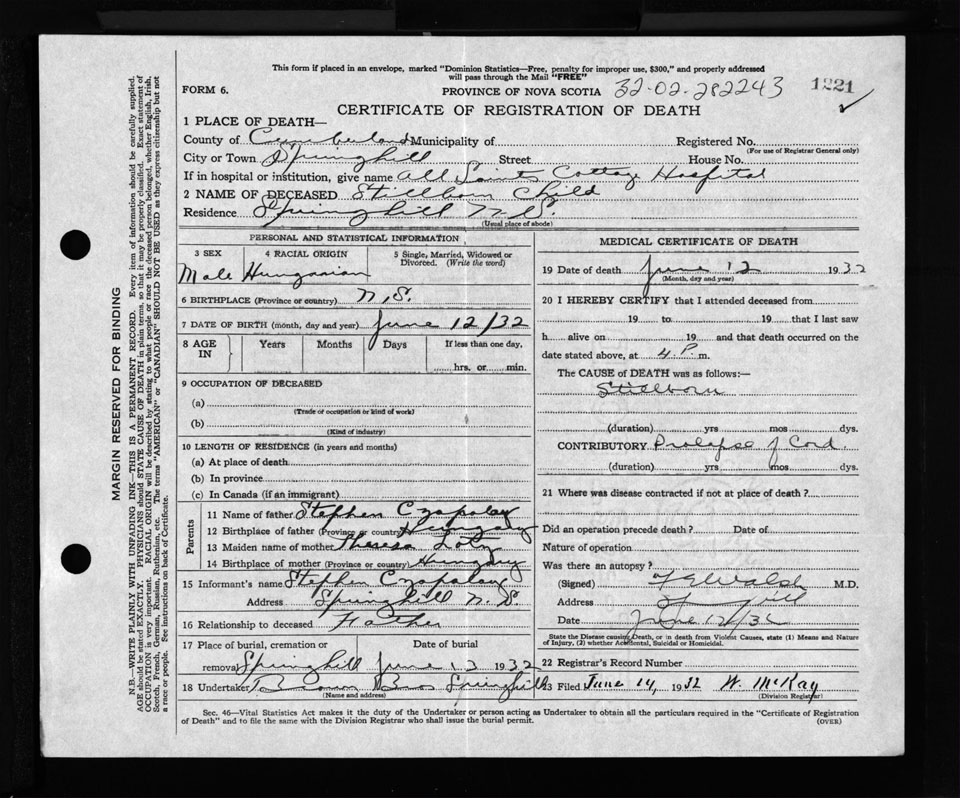 This form if placed in an envelope, marked "Dominion Statistics—Free, penalty for improper use, $300," and properly addressed
will pass through the Mail "FREE"
FORM 6.
PROVINCE OF NOVA SCOTIA 32-02-282243
1221
CERTIFICATE OF REGISTRATION OF DEATH
1 PLACE OF DEATH—
County of Cumberland Municipality of Registered No.
(For use of Registrar General only)
City or Town Springhill Street House No.
If in hospital or institution, give name All Saints Cottage Hospital
2 NAME OF DECEASED Stillborn Child
Residence Springhill N.S.
(Usual place of abode)
PERSONAL AND STATISTICAL INFORMATION
3 SEX 4 RACIAL ORIGIN 5 Single, Married, Widowed or
Divorced. (Write the word)
Male Hungarian
6 BIRTHPLACE (Province or country) N.S.
7 DATE OF BIRTH (month, day and year) June 12/32
8 AGE IN Years Months Days If less than one day,
hrs. or min.
9 OCCUPATION OF DECEASED
(a)
(Trade of occupation or kind of work)
(b)
(Kind of industry)
10 LENGTH OF RESIDENCE (in years and months)
(a) At place of death
(b) In province
(c) In Canada (if an immigrant)
Parents
11 Name of father Stephen Czapalay
12 Birthplace of father (Province or country) Hungary
13 Maiden name of mother Theresa
14 Birthplace of mother (Province or country) Hungary
15 Informant's name Stephen Czapalay
Address Springhill N.S.
16 Relationship to deceased Father
17 Place of burial, cremation or Date of burial
removal Springhill June 13 1932
18 Undertaker Brown Bros Springhill
(Name and address)
MEDICAL CERTIFICATE OF DEATH
19 Date of death June 12 1932
(Month, day and year)
20 I HEREBY CERTIFY that I attended deceased from
19 to 19 that I last saw
h alive on 19 and that death occurred on the
date stated above, at 4 P. m.
The CAUSE of DEATH was as follows:—
Stillborn
(duration) yrs mos dys.
CONTRIBUTORY Prolapse of Cord.
(duration) yrs mos dys.
21 Where was disease contracted if not at place of death?
Did an operation precede death? Date of
Nature of operation
Was there an autopsy?
(Signed) Walsh M.D.
Address Springhill
Date June 12/32
State the Disease causing Death, or in death from Violent Causes, state (1) Means and Nature
of Injury, (2) whether Accidental, Suicidal or Homicidal.
22 Registrar's Record Number
23 Filed June 14, 1932 W. McKay
(Division Registrar)
Sec. 46—Vital Statistics Act makes it the duty of the Undertaker or person acting as Undertaker to obtain all the particulars required in the "Certificate of Registration
of Death" and to file the same with the Division Registrar who shall issue the burial permit.
(OVER)
MARGIN RESERVED FOR BINDING
N.B.—WRITE PLAINLY WITH UNFADING INK—THIS IS A PERMANENT RECORD. Every item of information should be carefully supplied.
AGE should be stated EXACTLY. PHYSICIANS should STATE CAUSE OF DEATH in plain terms, so that it may be properly classified. Exact statement of
OCCUPATION is very important. RACIAL ORIGIN will be described by stating to what people or race the deceased person belonged, whether English, Irish,
Scotch, French, German, Russian, Ruthenian, etc. The terms "AMERICAN" or "CANADIAN" SHOULD NOT BE USED as they express citizenship but not
a race or people. See instructions on back of Certificate.